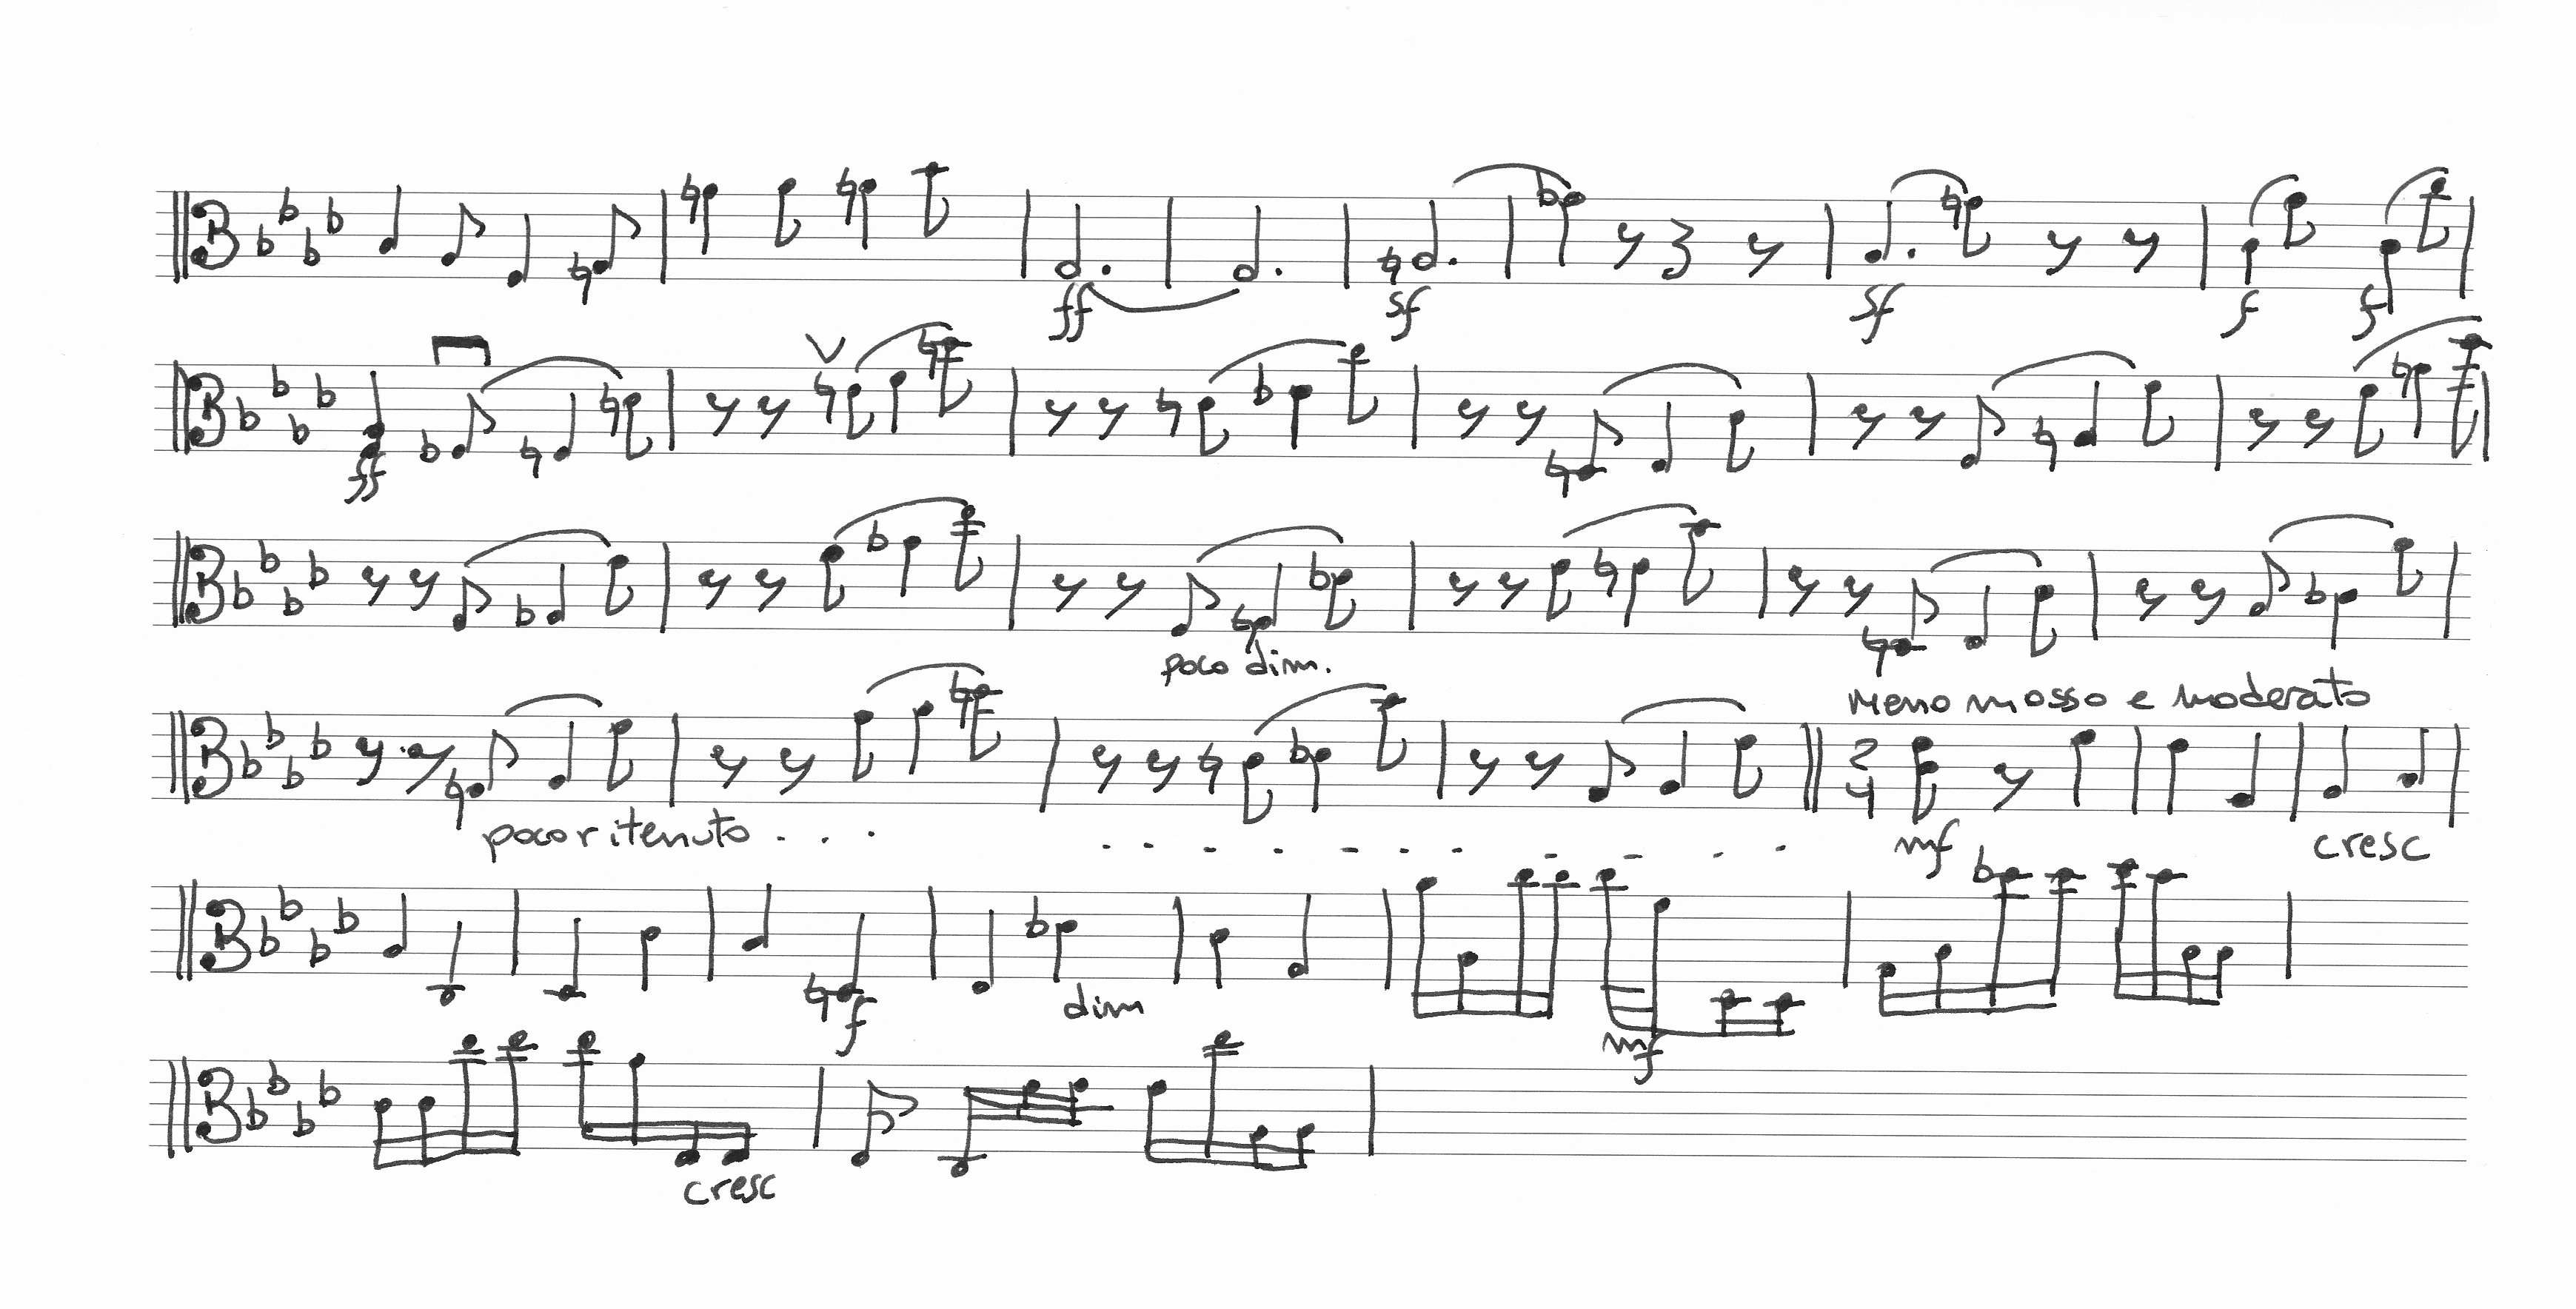 ff sf sf f f
ff
poco dim.
Meno mosso e moderato
2
4
poco ritenuto . . . . - - - - - - - - - .
mf cresc
f dim mf
cresc